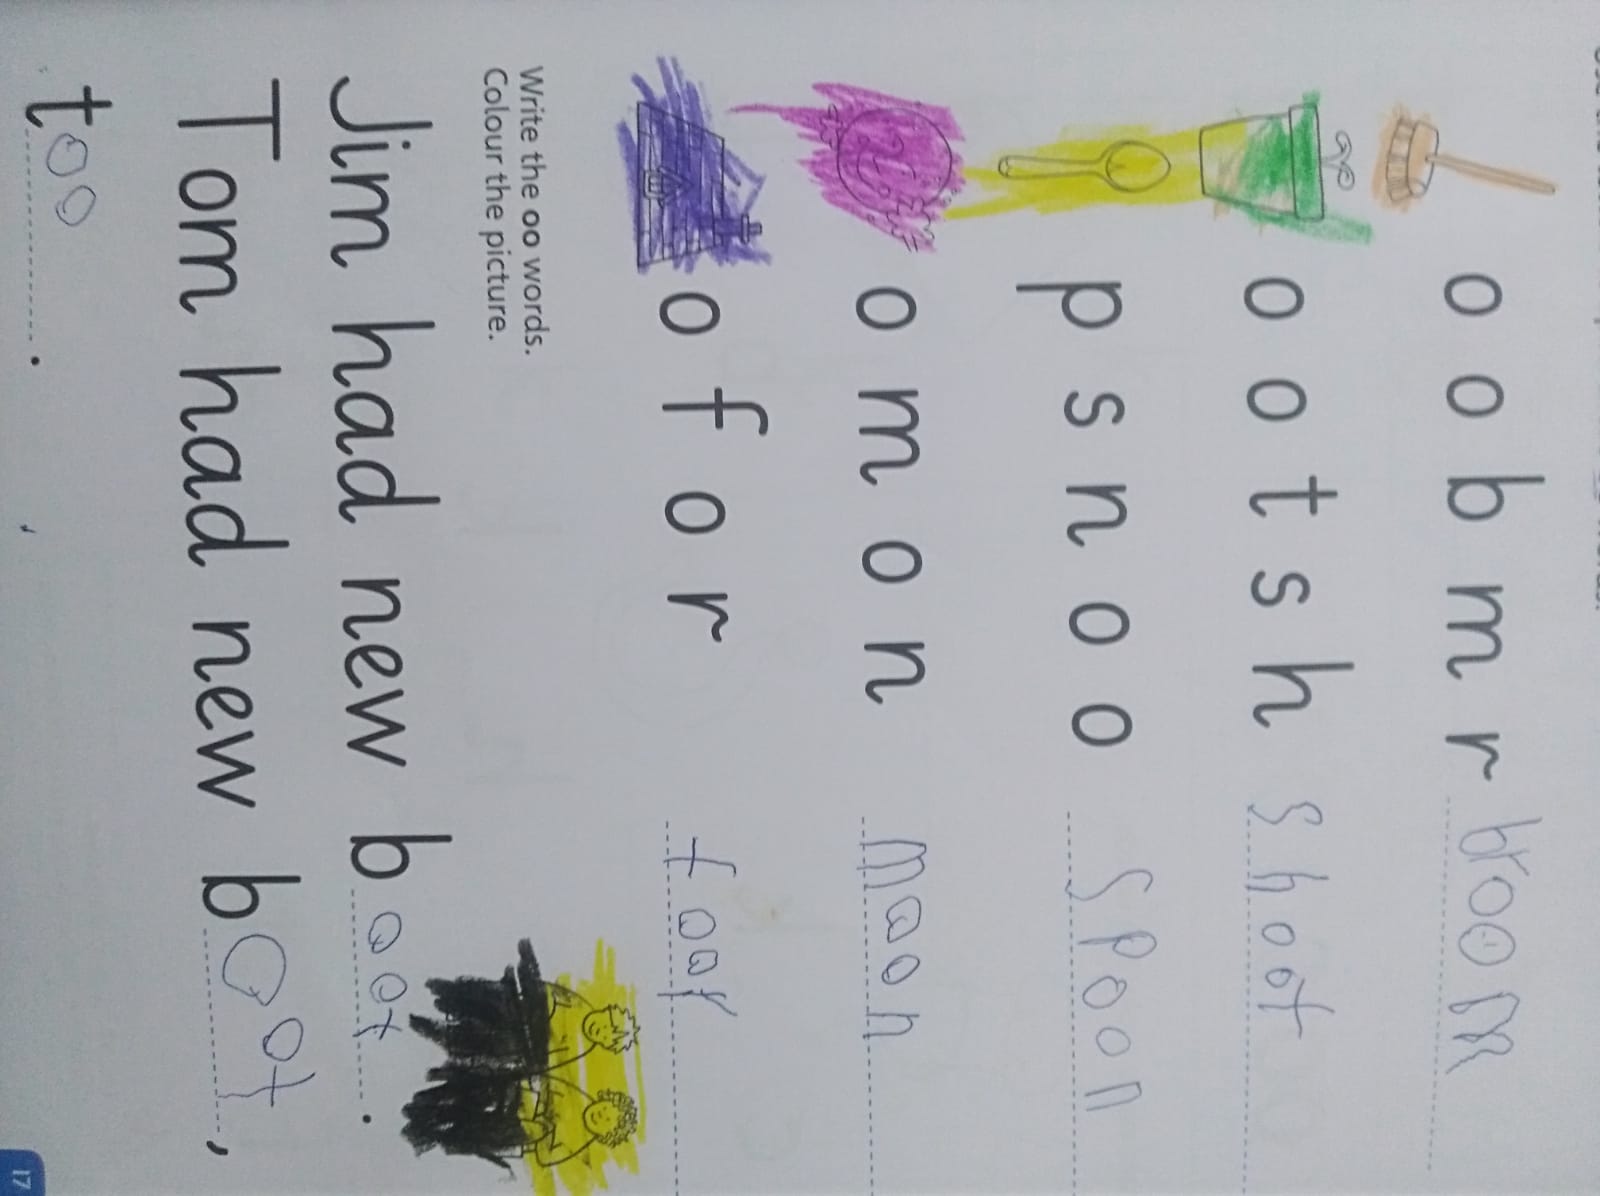 o o b m r broom
o o t s h shoot
p s n o o spoon
o m o n moon
o f o r roof
Write the oo words.
Colour the picture.
Jim had new boot.
Tom had new boot,
too.
17